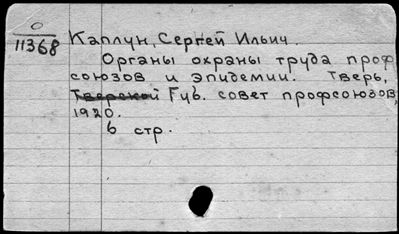 О
11368
Каплун, Сергей Ильич.
Органы охраны труда проф
союзов и эпидемии. Тверь,
Тверской Губ. совет профсоюзов,
1920.
6 стр.